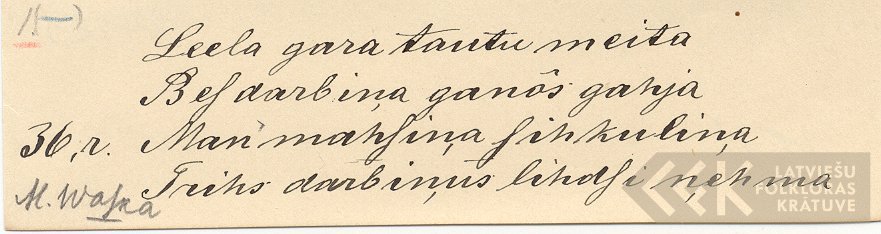 1(—)
Leela gara tautu meita
Beſ darbiņa ganôs gahja
36, r. Man mahſiņa ſihkuliņa
Trihs darbiņus lihdſi ņehma
M. Waſka
LATVIEŠU
FOLKLORAS
KRĀTUVE